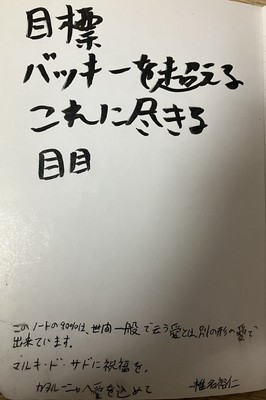 目標
バッキーを超える
これに尽きる
目目
このノートの90%は、世間一般で云う愛とは、別の形の愛で
出来ています。
マルキ・ド・サドに祝福を。
カタルーニャへ愛を込めて
椎名裕仁